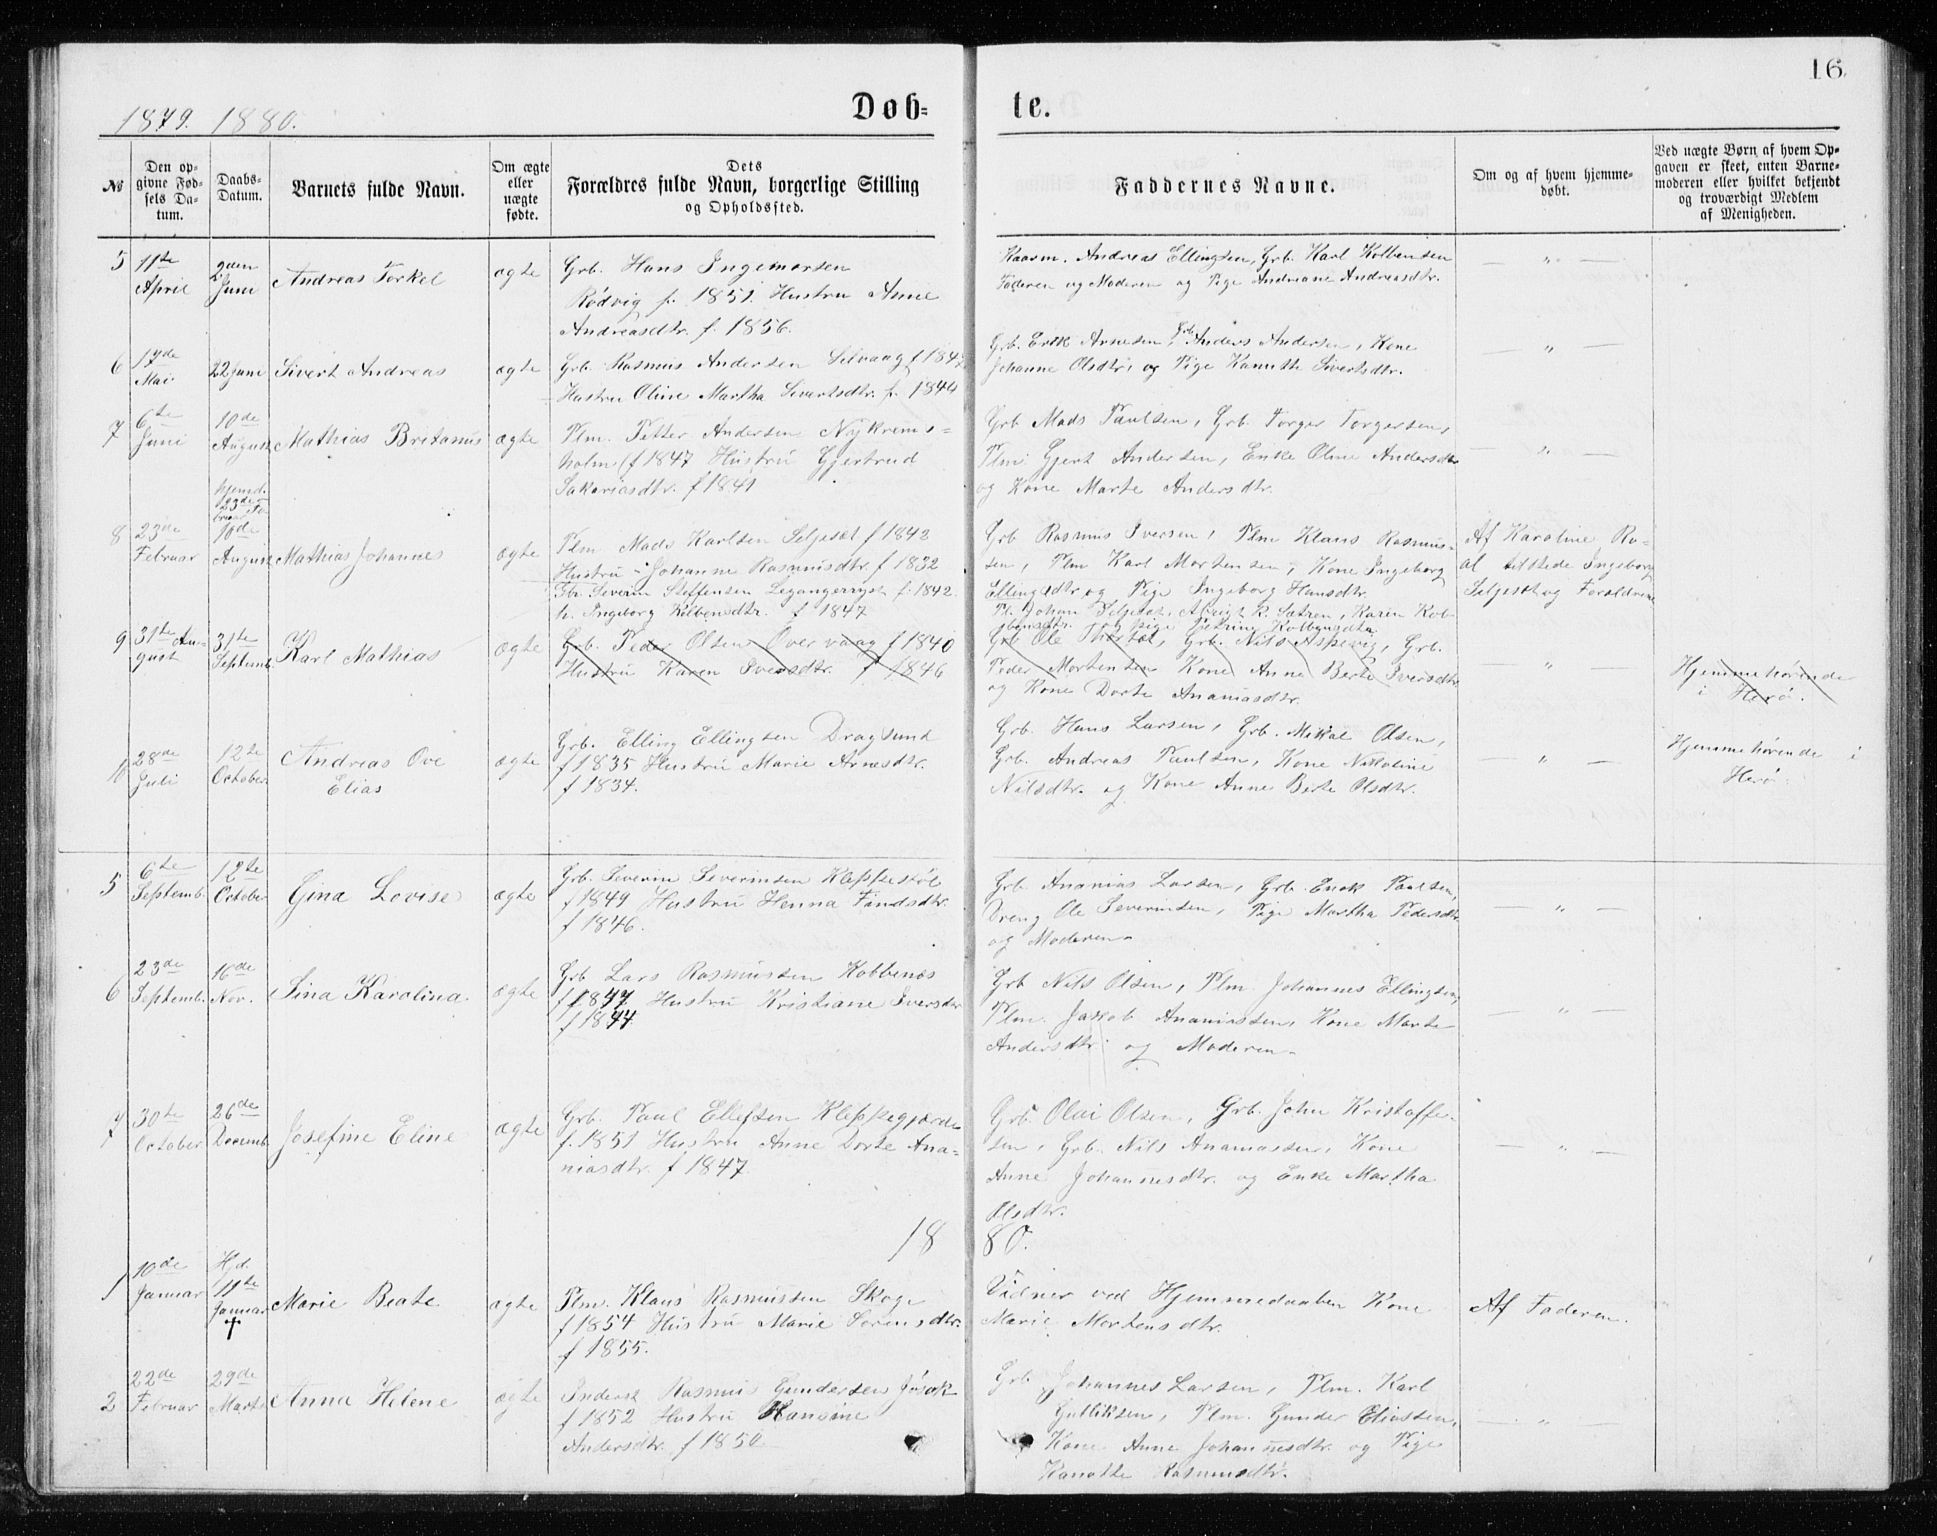 16.
1879. 1880.
Døb-
te.
№
Den op-
givne Fød-
sels Da-
tum.
Daabs-
Datum.
Barnets fulde Navn.
Om ægte
eller
uægte
fødte.
Dets
Forældres fulde Navn, borgerlige Stilling
og Opholdssted.
Faddernes Navne.
Om og af hvem hjemme-
døbt.
Ved uægte Børn af hvem Op-
gaven er skeet, enten Barne-
moderen eller hvilket bekjendt
og troværdigt Medlem
af Menigheden.
5
11te
April
2den
Juni
Andreas Torkel
ægte
Grb. Hans Ingemarsen
Rødvig f. 1851. Hustru Anne
Andreasdtr. f. 1856.
Kaarm. Andreas Ellingsen, Grb. Karl Kolbensen
Faderen og Moderen og Pige Andriane Andreasdtr.
— „ —
6
17de
Mai
22 Juni
Sivert Andreas
ægte
Grb. Rasmus Andersen Selvaag f 1847
Hustru Oline Martha Sivertsdtr. f. 1844
Grb. Erik Arnesen, Grb. Anders Andersen, Kone
Johanne Olsdtr, og Pige Kanutte Sivertsdtr.
— „ —
7
6te
Juni
10de
August
Mathias Britanus
ægte
Plm. Petter Andersen Nykrems-
holm f 1847 Hustru Gjertrud
Sakariasdtr. f 1841
Grb Mads Paulsen, Grb. Torger Torgersen,
Plm Gjert Andersen, Enke Oline Andersdtr
og Kone Marte Andersdtr.
— „ —
8
23de
Februar
hjemd.
23de Fe-
bruar
10de
August
Mathias Johannes
ægte
Plm Mads Karlsen Seljeset f 1843
Hustru Johanne Rasmusdtr. f 1832
Grb Rasmus Iversen, Plm Klaus Rasmus-
sen, Plm Karl Mortensen, Kone Ingeborg
Ellingsdtr og Pige Ingeborg Hansdtr.
Af Karoline Ro-
al tilstede Ingeborg
Seljeset og Forældrene
9
31te Au-
gust
31te
Septemb.
Karl Mathias
ægte
Fbr. Severin Steffensen Legangerryst f. 1842.
h. Ingeborg Kolbensdtr. f 1847
Grb. Peder Olsen Overvaag f 1840
Hustru Karen Iversdtr. f 1846
Pl. Johan Seljeset, Albrigt R. Sætren, Karen Kol-
bensdtr. og pige Petrine Kolbensdtr.
Grb Ole Thorset, Grb. Nils Aspevig, Grb.
Peder Mortensen Kone Anne Berte Iversdtr
og Kone Dorte Ananiasdtr.
— „ —
Hjemmehørende
i Herø.
10
28de
Juli
12te
October
Andreas Ove
Elias
ægte
Grb. Elling Ellingsen Dragsund
f 1835 Hustru Marie Arnesdtr.
f 1834.
Grb. Hans Larsen, Grb. Mikal Olsen,
Grb. Andreas Paulsen, Kone Nikoline
Nilsdtr. og Kone Anne Berte Olsdtr.
— „ —
Hjemmehørende i
Herø.
5
6te
Septemb.
12te
October
Gina Lovise
ægte
Grb. Severin Severinsen Kleppestøl
f 1849 Hustru Henna Findsdtr.
f 1846.
Grb. Ananias Larsen, Grb. Enok Paulsen,
Dreng Ole Severinsen, Pige Martha Pedersdtr
og Moderen
— „ —
6
23de
Septemb.
16de
Nov.
Sina Karolina
ægte
Grb Lars Rasmussen Kobbenes
f 1847 Hustru Kristiane Iversdtr
f 1844.
Grb Nils Olsen, Plm. Johannes Ellingsen,
Plm. Jakob Ananiassen, Kone Marte
Andersdtr og Moderen
— „ —
7
30te
October
26de
Decemb.
Josefine Eline
ægte
Grb. Paul Ellefsen Kleppegjærde
f. 1851 Hustru Anne Dorte Ana-
niasdtr. f 1847.
Grb. Olai Olsen, Grb. John Kristoffe-
sen, Grb. Nils Ananiassen, Kone
Anne Johannesdtr. og Enke Martha
Olsdtr.
— „ —
18 80.
1
10de
Januar
Hjd
11te
Januar
†
Marie Beate
ægte
Plm. Klaus Rasmussen Skoge
f 1854 Hustru Marie Sørensdtr.
f 1855.
Vidner ved Hjemmedaaben Kone
Marie Mortensdtr.
Af Faderen.
2
22de
Februar
29de
Marts
Anna Helene
ægte
Inderst Rasmus Gundersen Jøsok
f 1852 Hustru Hansine
Andersdtr. f 1850
Grb Johannes Larsen, Plm. Karl
Gulliksen, Plm. Gunder Eliassen,
Kone Anne Johannesdtr. og Pige
Kanutte Rasmusdtr.
— „ —